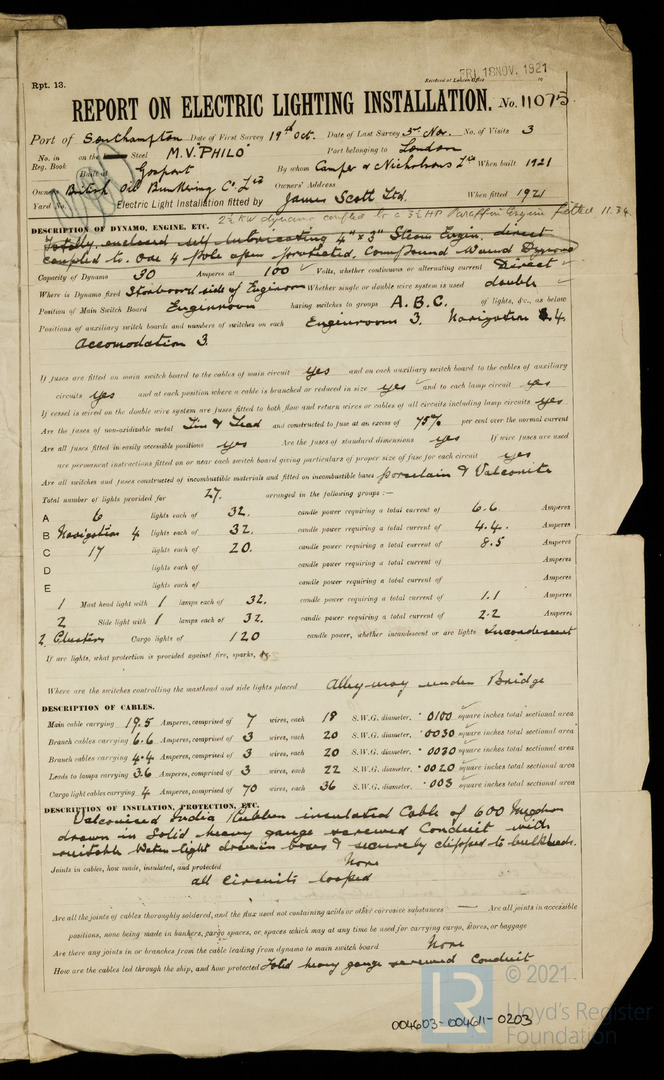 Rpt. 13.
FRI. 18 NOV. 1921
Received at London Office
REPORT ON ELECTRIC LIGHTING INSTALLATION. No. 11075.
Port of Southampton Date of First Survey 19th Oct. Date of Last Survey 3rd Nov. No. of Visits 3
No. in Reg. Book on the Steel M.V. "PHILO" Port belonging to London
Built at Gosport By whom Camper & Nicholsons Ltd When built 1921
Owners British Oil Bunkering Co. Ltd Owners' Address
Yard No. Electric Light Installation fitted by James Scott Ltd. When fitted 1921
2½ KW dynamo coupled to a 3½ HP Paraffin Engine fitted 11.34.
DESCRIPTION OF DYNAMO, ENGINE, ETC.
Totally enclosed self lubricating 4" x 3" Steam Engin. direct
coupled to. one 4 pole open protected. Compound Wound Dynamo
Capacity of Dynamo 30 Amperes at 100 Volts, whether continuous or alternating current Direct
Where is Dynamo fixed Starboard side of Enginroom Whether single or double wire system is used double
Position of Main Switch Board Enginroom having switches to groups A. B. C. of lights, &c., as below
Positions of auxiliary switch boards and numbers of switches on each Enginroom 3. Navigation 4.
Accomodation 3.
If fuses are fitted on main switch board to the cables of main circuit yes and on each auxiliary switch board to the cables of auxiliary
circuits yes and at each position where a cable is branched or reduced in size yes and to each lamp circuit yes
If vessel is wired on the double wire system are fuses fitted to both flow and return wires or cables of all circuits including lamp circuits yes
Are the fuses of non-oxidizable metal Tin & Lead and constructed to fuse at an excess of 75% per cent over the normal current
Are all fuses fitted in easily accessible positions yes Are the fuses of standard dimensions yes If wire fuses are used
are permanent instructions fitted on or near each switch board giving particulars of proper size of fuse for each circuit yes
Are all switches and fuses constructed of incombustible materials and fitted on incombustible bases porcelain & Valconite
Total number of lights provided for 27. arranged in the following groups :—
A 6 lights each of 32. candle power requiring a total current of 6.6. Amperes
B Navigation 4 lights each of 32. candle power requiring a total current of 4.4. Amperes
C 17 lights each of 20. candle power requiring a total current of 8.5 Amperes
D lights each of candle power requiring a total current of Amperes
E lights each of candle power requiring a total current of Amperes
1 Mast head light with 1 lamps each of 32. candle power requiring a total current of 1.1 Amperes
2 Side light with 1 lamps each of 32. candle power requiring a total current of 2.2 Amperes
2 Clusters Cargo lights of 120 candle power, whether incandescent or arc lights Incandescent
If arc lights, what protection is provided against fire, sparks, &c.
Where are the switches controlling the masthead and side lights placed Alley way under Bridge
DESCRIPTION OF CABLES.
Main cable carrying 19.5 Amperes, comprised of 7 wires, each 18 S.W.G. diameter, .0100 square inches total sectional area
Branch cables carrying 6.6 Amperes, comprised of 3 wires, each 20 S.W.G. diameter, .0030 square inches total sectional area
Branch cables carrying 4.4 Amperes, comprised of 3 wires, each 20 S.W.G. diameter, .0030 square inches total sectional area
Leads to lamps carrying 3.6 Amperes, comprised of 3 wires, each 22 S.W.G. diameter, .0020 square inches total sectional area
Cargo light cables carrying 4 Amperes, comprised of 70 wires, each 36 S.W.G. diameter, .003 square inches total sectional area
DESCRIPTION OF INSULATION, PROTECTION, ETC.
Valconised India Rubber insulated Cable of 600 Megohm
drawn in Solid heavy gauge screwed Conduit with
suitable Water-tight drawin boxes & securely clipped to bulkheads.
Joints in cables, how made, insulated, and protected None
all Circuits looped
Are all the joints of cables thoroughly soldered, and the flux used not containing acids or other corrosive substances — Are all joints in accessible
positions, none being made in bunkers, cargo spaces, or spaces which may at any time be used for carrying cargo, stores, or baggage
Are there any joints in or branches from the cable leading from dynamo to main switch board None
How are the cables led through the ship, and how protected Solid heavy gauge screwed Conduit
© 2021
LR
Lloyd's Register
Foundation
004603-004611-0203